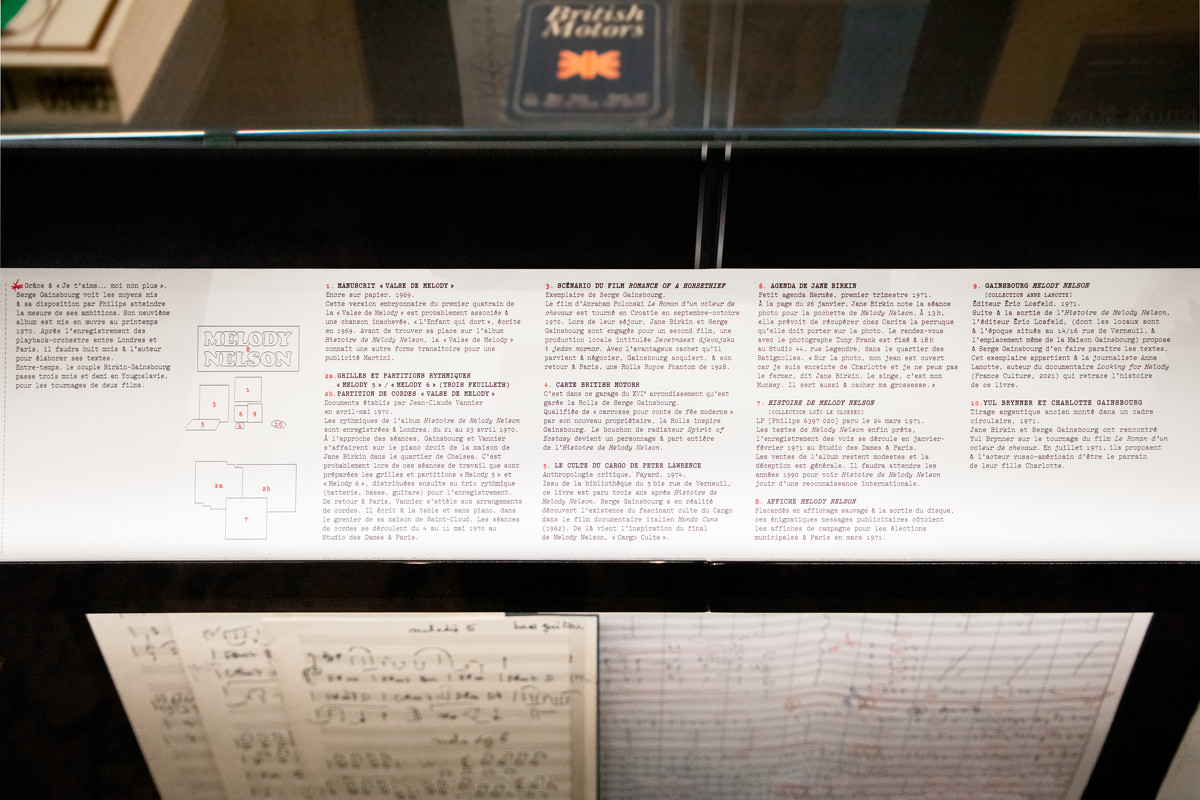 British
Motors
* Grâce à « Je t'aime... moi non plus »,
Serge Gainsbourg voit les moyens mis
à sa disposition par Philips atteindre
la mesure de ses ambitions. Son neuvième
album est mis en œuvre au printemps
1970. Après l'enregistrement des
playback-orchestre entre Londres et
Paris, il faudra huit mois à l'auteur
pour élaborer ses textes.
Entre-temps, le couple Birkin-Gainsbourg
passe trois mois et demi en Yougoslavie,
pour les tournages de deux films.
MELODY
NELSON
8
1
3
6
9
5
4
10
2a
2b
7
1. MANUSCRIT « VALSE DE MELODY »
Encre sur papier, 1969.
Cette version embryonnaire du premier quatrain de
la « Valse de Melody » est probablement associée à
une chanson inachevée, « L'Enfant qui dort », écrite
en 1969. Avant de trouver sa place sur l'album
Histoire de Melody Nelson, la « Valse de Melody »
connaît une autre forme transitoire pour une
publicité Martini.
2a. GRILLES ET PARTITIONS RYTHMIQUES
« MELODY 5 » / « MELODY 6 » (TROIS FEUILLETS)
2b. PARTITION DE CORDES « VALSE DE MELODY »
Documents établis par Jean-Claude Vannier
en avril-mai 1970.
Les rythmiques de l'album Histoire de Melody Nelson
sont enregistrées à Londres, du 21 au 23 avril 1970.
À l'approche des séances, Gainsbourg et Vannier
s'affairent sur le piano droit de la maison de
Jane Birkin dans le quartier de Chelsea. C'est
probablement lors de ces séances de travail que sont
préparées les grilles et partitions « Melody 5 » et
« Melody 6 », distribuées ensuite au trio rythmique
(batterie, basse, guitare) pour l'enregistrement.
De retour à Paris, Vannier s'attèle aux arrangements
de cordes. Il écrit à la table et sans piano, dans
le grenier de sa maison de Saint-Cloud. Les séances
de cordes se déroulent du 4 au 11 mai 1970 au
Studio des Dames à Paris.
3. SCÉNARIO DU FILM ROMANCE OF A HORSETHIEF
Exemplaire de Serge Gainsbourg.
Le film d'Abraham Polonski Le Roman d'un voleur de
chevaux est tourné en Croatie en septembre-octobre
1970. Lors de leur séjour, Jane Birkin et Serge
Gainsbourg sont engagés pour un second film, une
production locale intitulée Devetnaest djevojaka
i jedan mornar. Avec l'avantageux cachet qu'il
parvient à négocier, Gainsbourg acquiert, à son
retour à Paris, une Rolls Royce Phantom de 1928.
4. CARTE BRITISH MOTORS
C'est dans ce garage du XVIe arrondissement qu'est
garée la Rolls de Serge Gainsbourg.
Qualifiée de « carrosse pour conte de fée moderne »
par son nouveau propriétaire, la Rolls inspire
Gainsbourg. Le bouchon de radiateur Spirit of
Ecstasy devient un personnage à part entière
de l'Histoire de Melody Nelson.
5. LE CULTE DU CARGO DE PETER LAWRENCE
Anthropologie critique, Fayard, 1974.
Issu de la bibliothèque du 5 bis rue de Verneuil,
ce livre est paru trois ans après Histoire de
Melody Nelson. Serge Gainsbourg a en réalité
découvert l'existence du fascinant culte du Cargo
dans le film documentaire italien Mondo Cane
(1962). De là vient l'inspiration du final
de Melody Nelson, « Cargo Culte ».
6. AGENDA DE JANE BIRKIN
Petit agenda Hermès, premier trimestre 1971.
À la page du 26 janvier, Jane Birkin note la séance
photo pour la pochette de Melody Nelson. À 13h,
elle prévoit de récupérer chez Carita la perruque
qu'elle doit porter sur la photo. Le rendez-vous
avec le photographe Tony Frank est fixé à 18h
au Studio 44, rue Legendre, dans le quartier des
Batignolles. « Sur la photo, mon jean est ouvert
car je suis enceinte de Charlotte et je ne peux pas
le fermer, dit Jane Birkin. Le singe, c'est mon
Munkey. Il sert aussi à cacher ma grossesse. »
7. HISTOIRE DE MELODY NELSON
[COLLECTION LOÏC LE CLOEREC]
LP [Philips 6397 020] paru le 24 mars 1971.
Les textes de Melody Nelson enfin prêts,
l'enregistrement des voix se déroule en janvier-
février 1971 au Studio des Dames à Paris.
Les ventes de l'album restent modestes et la
déception est générale. Il faudra attendre les
années 1990 pour voir Histoire de Melody Nelson
jouir d'une reconnaissance internationale.
8. AFFICHE MELODY NELSON
Placardés en affichage sauvage à la sortie du disque,
ces énigmatiques messages publicitaires côtoient
les affiches de campagne pour les élections
municipales à Paris en mars 1971.
9. GAINSBOURG MELODY NELSON
[COLLECTION ANNE LAMOTTE]
Éditeur Éric Losfeld, 1971.
Suite à la sortie de l'Histoire de Melody Nelson,
l'éditeur Éric Losfeld, (dont les locaux sont
à l'époque situés au 14/16 rue de Verneuil, à
l'emplacement même de la Maison Gainsbourg) propose
à Serge Gainsbourg d'en faire paraître les textes.
Cet exemplaire appartient à la journaliste Anne
Lamotte, auteur du documentaire Looking for Melody
(France Culture, 2021) qui retrace l'histoire
de ce livre.
10. YUL BRYNNER ET CHARLOTTE GAINSBOURG
Tirage argentique ancien monté dans un cadre
circulaire, 1971.
Jane Birkin et Serge Gainsbourg ont rencontré
Yul Brynner sur le tournage du film Le Roman d'un
voleur de chevaux. En juillet 1971, ils proposent
à l'acteur russo-américain d'être le parrain
de leur fille Charlotte.